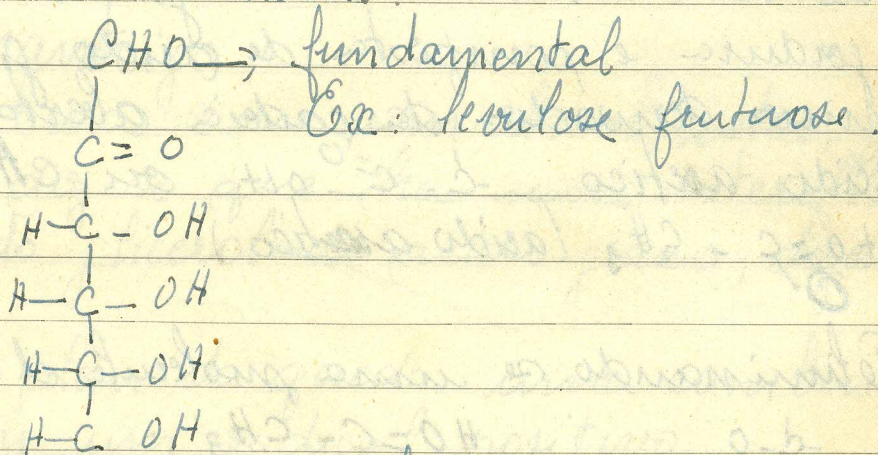 CHO → fundamental
Ex: levulose frutuose.
C = O
H - C - OH
H - C - OH
H - C - OH
H - C OH